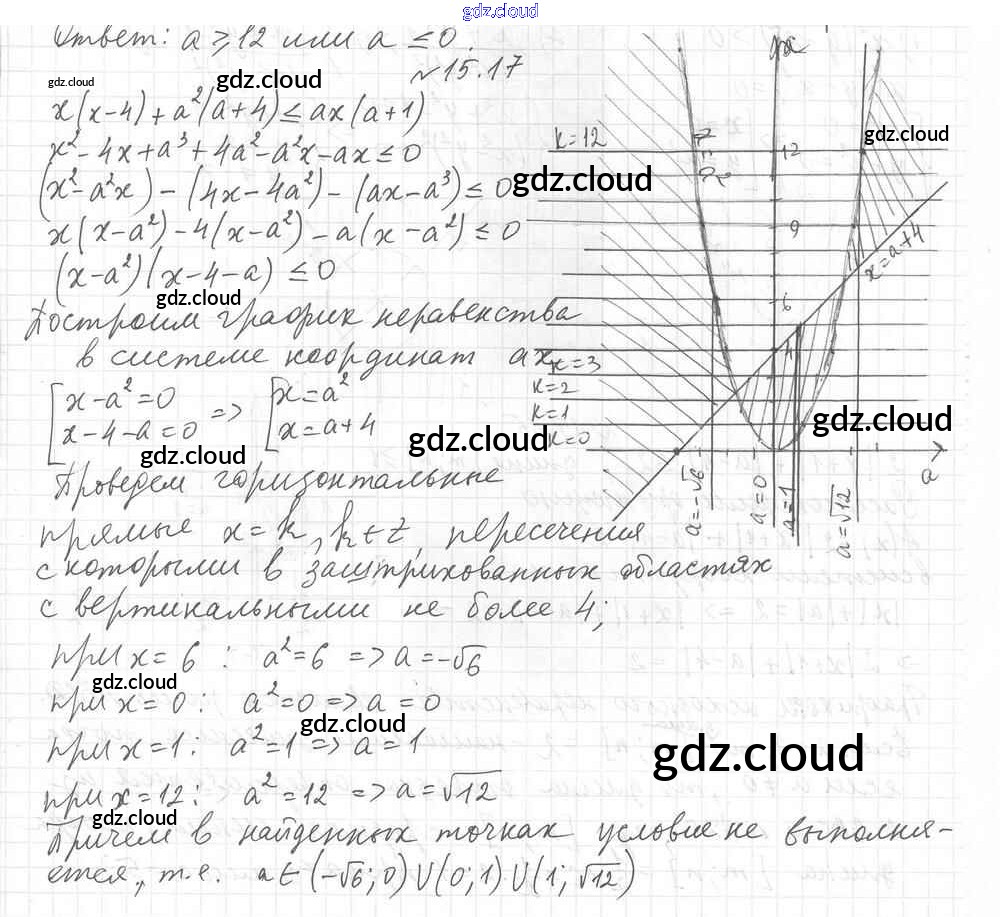 gdz.cloud
Ответ: a ⩾ 12 или a ≤ 0.
№15.17
gdz.cloud
gdz.cloud
x(x-4)+a²(a+4) ≤ ax(a+1)
x²-4x+a³+4a²-a²x-ax ≤ 0
(x²-a²x)-(4x-4a²)-(ax-a³) ≤ 0
gdz.cloud
x(x-a²)-4(x-a²)-a(x-a²) ≤ 0
(x-a²)(x-4-a) ≤ 0
gdz.cloud
Построим график неравенства
в системе координат ax
[x-a²=0 => [x=a²
x-4-a=0 x=a+4
gdz.cloud
gdz.cloud
Проведем горизонтальные
прямые x=k, k∈Z, пересечения
с которыми в заштрихованных областях
с вертикальными не более 4;
при x=6: a²=6 => a=-√6
gdz.cloud
при x=0: a²=0 => a=0
gdz.cloud
при x=1: a²=1 => a=1
при x=12: a²=12 => a=√12
gdz.cloud
gdz.cloud
Причем в найденных точках условие не выполня-
ется, т.е. a∈(-√6;0)∪(0;1)∪(1;√12)
x
k=12
12
gdz.cloud
9
x=a+4
6
k=3
4
k=2
k=1
k=0
gdz.cloud
a
a=-√6
a=0
a=1
a=√12